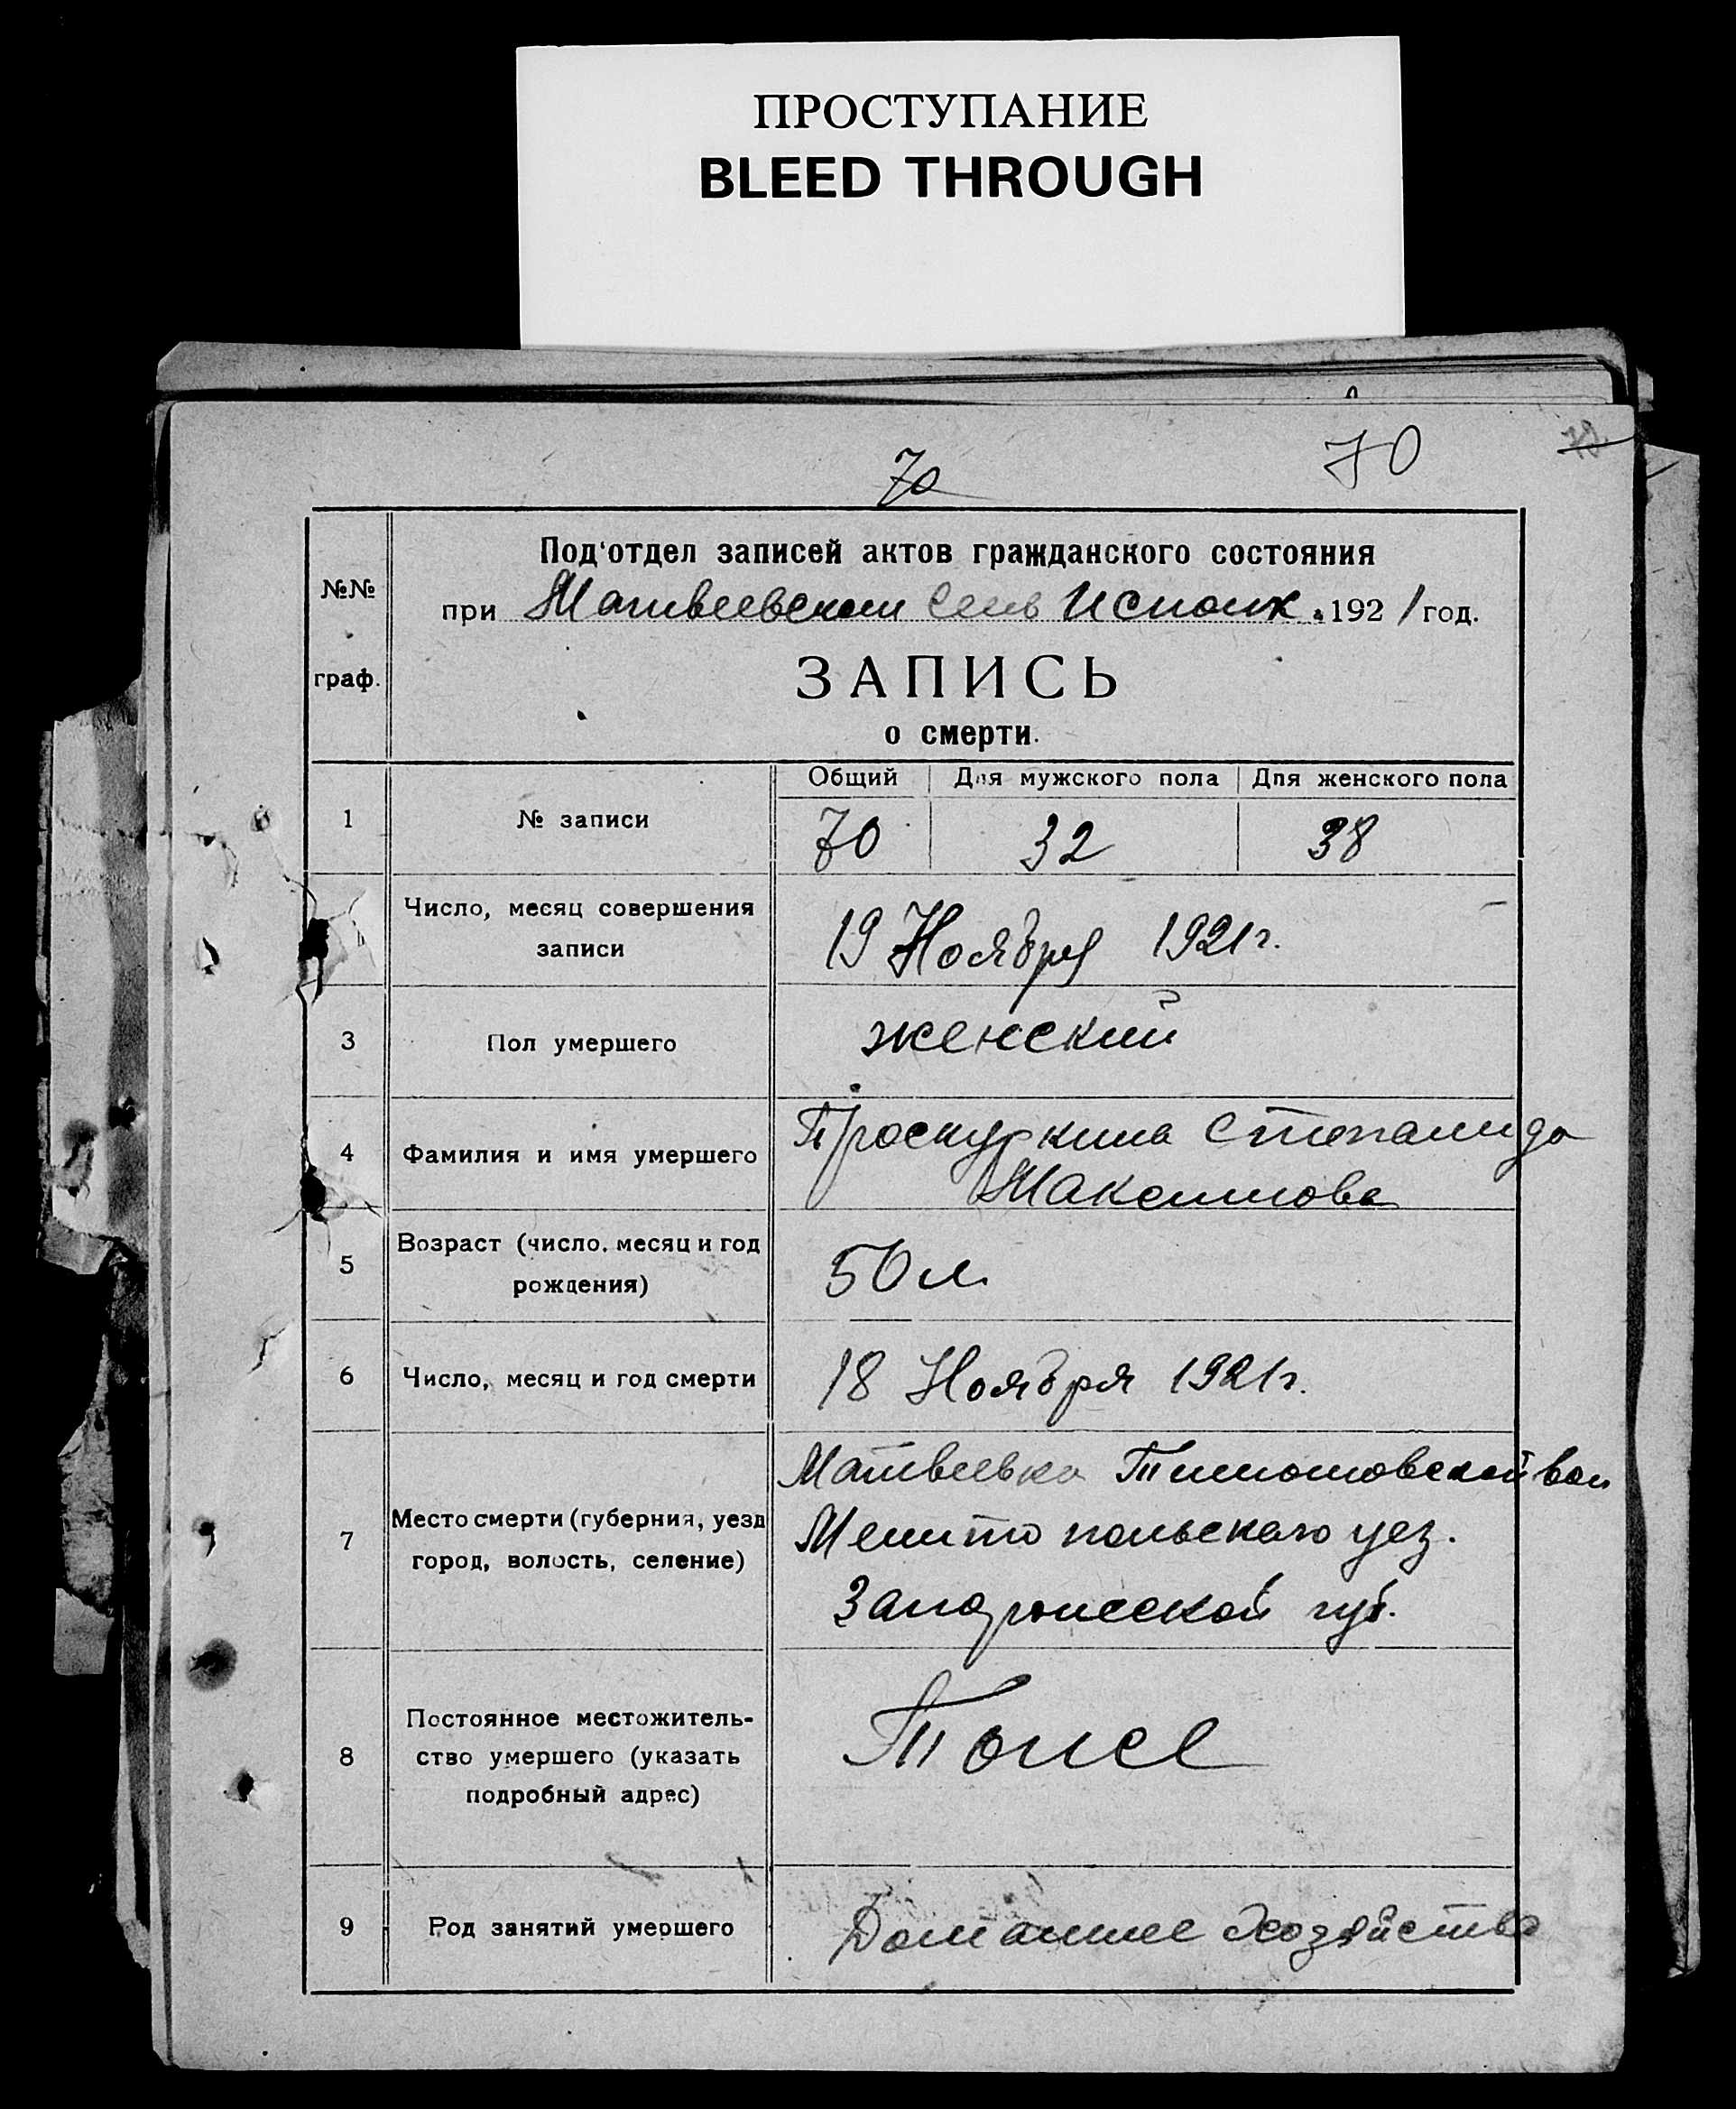 ПРОСТУПАНИЕ
BLEED THROUGH
70
70
Под'отдел записей актов гражданского состояния
№№ граф.
при Матвеевском Сель Исполк. 1921 год.
ЗАПИСЬ
о смерти.
Общий Для мужского пола Для женского пола
1 № записи 70 32 38
Число, месяц совершения
записи
19 Ноября 1921 г.
3 Пол умершего женский
4 Фамилия и имя умершего
Проскуркина Степанида
Максимова
5 Возраст (число, месяц и год
рождения)
50 л.
6 Число, месяц и год смерти 18 Ноября 1921 г.
7 Место смерти (губерния, уезд
город, волость, селение)
Матвеевка Тимошовской вол
Мелитопольского уез.
Запорожской губ.
8 Постоянное местожитель-
ство умершего (указать
подробный адрес)
Тоже
9 Род занятий умершего Домашнее Хозяйство